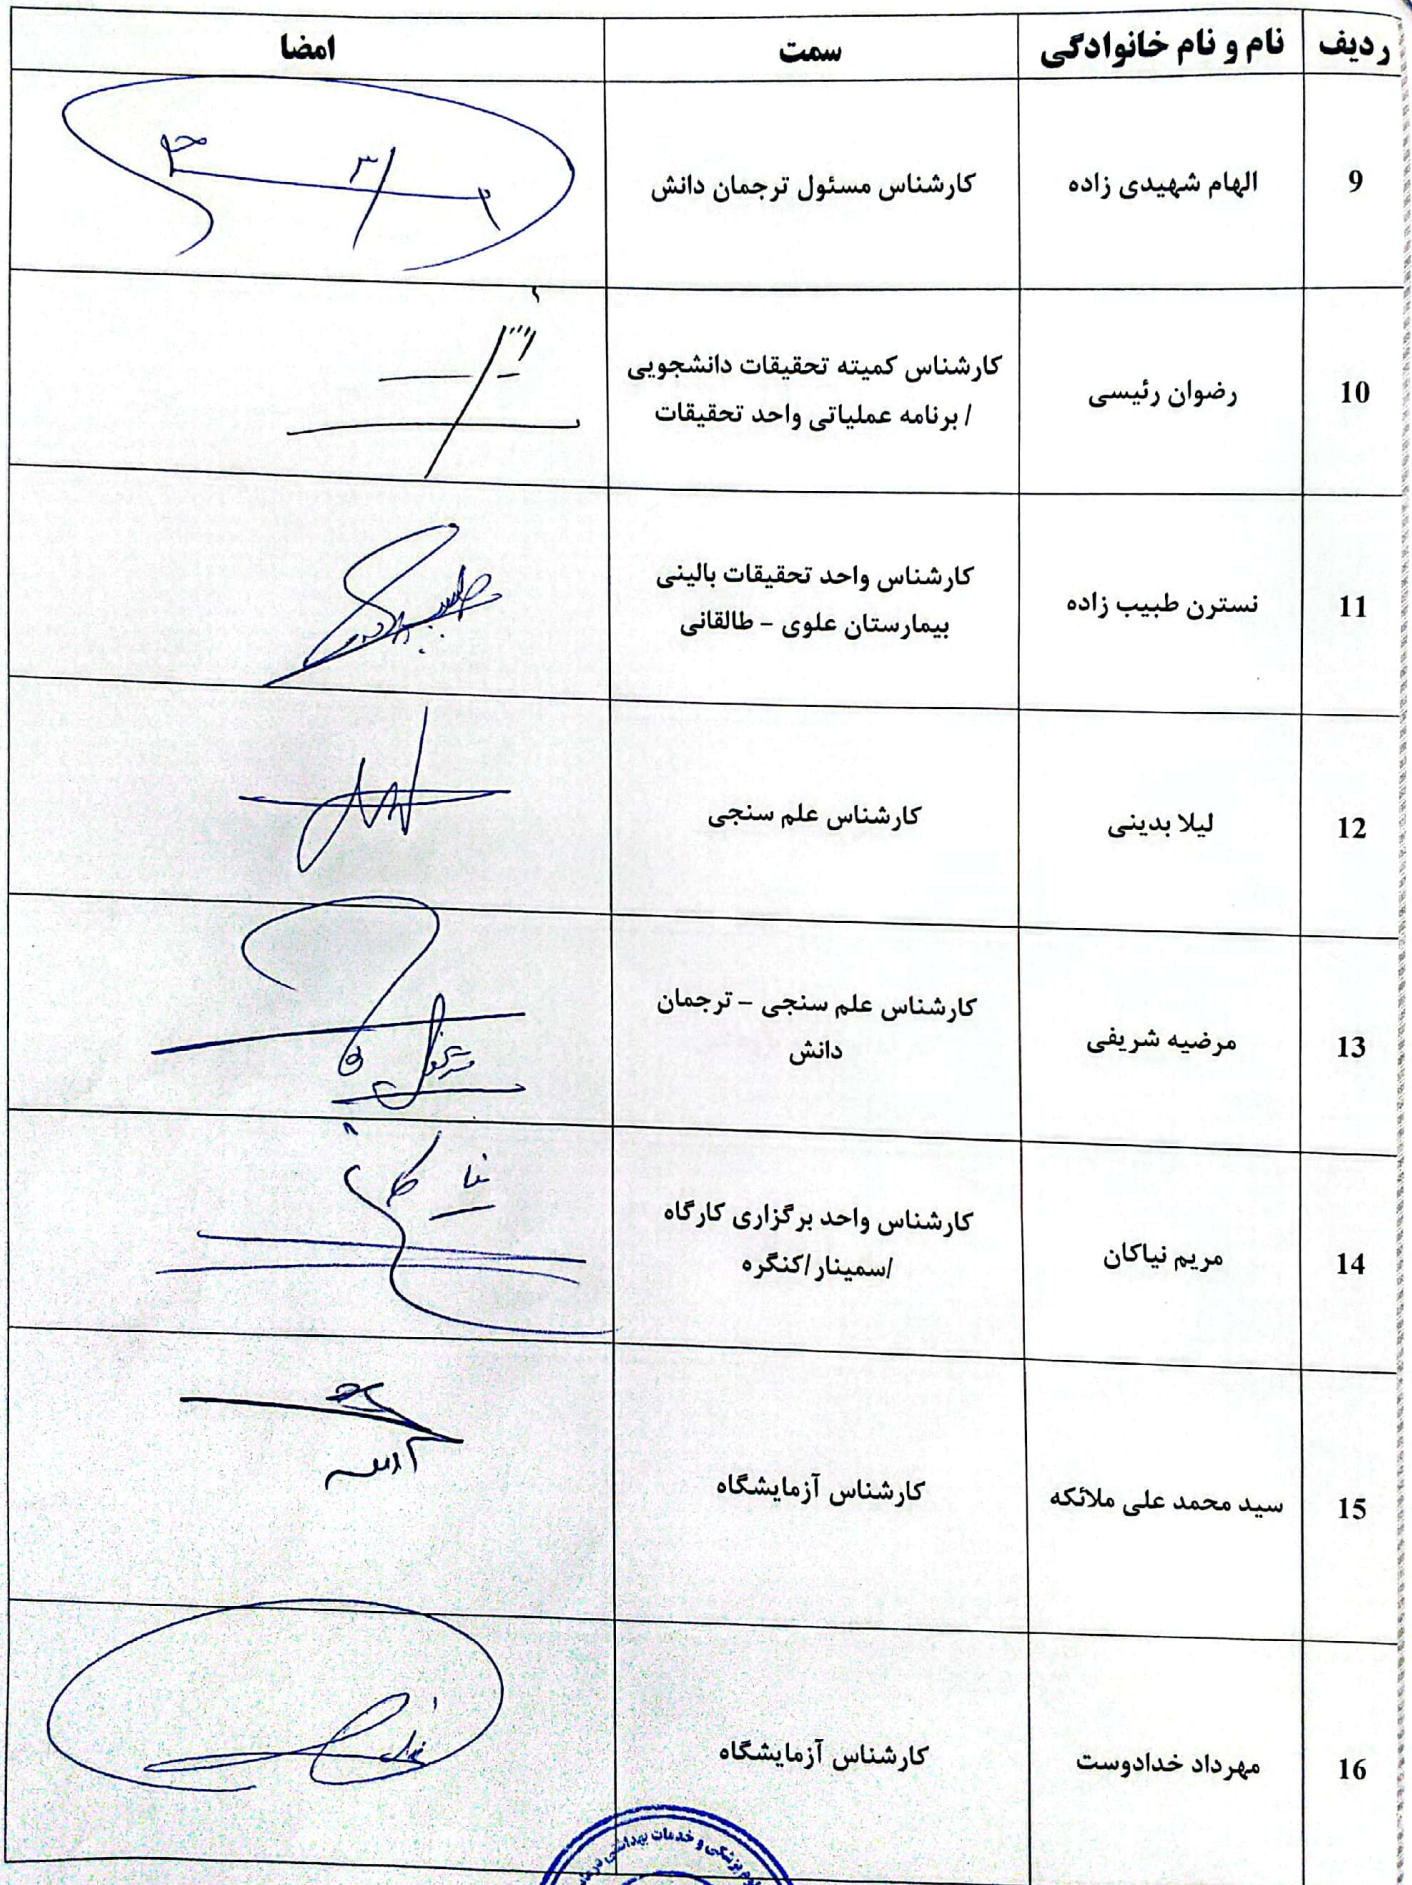 ردیف نام و نام خانوادگی سمت امضا
9 الهام شهیدی زاده کارشناس مسئول ترجمان دانش
10 رضوان رئیسی کارشناس کمیته تحقیقات دانشجویی
/ برنامه عملیاتی واحد تحقیقات
11 نسترن طبیب زاده کارشناس واحد تحقیقات بالینی
بیمارستان علوی – طالقانی
12 لیلا بدینی کارشناس علم سنجی
13 مرضیه شریفی کارشناس علم سنجی – ترجمان
دانش
14 مریم نیاکان کارشناس واحد برگزاری کارگاه
/سمینار/کنگره
15 سید محمد علی ملائکه کارشناس آزمایشگاه
16 مهرداد خدادوست کارشناس آزمایشگاه
پزشکی و خدمات بهداشتی